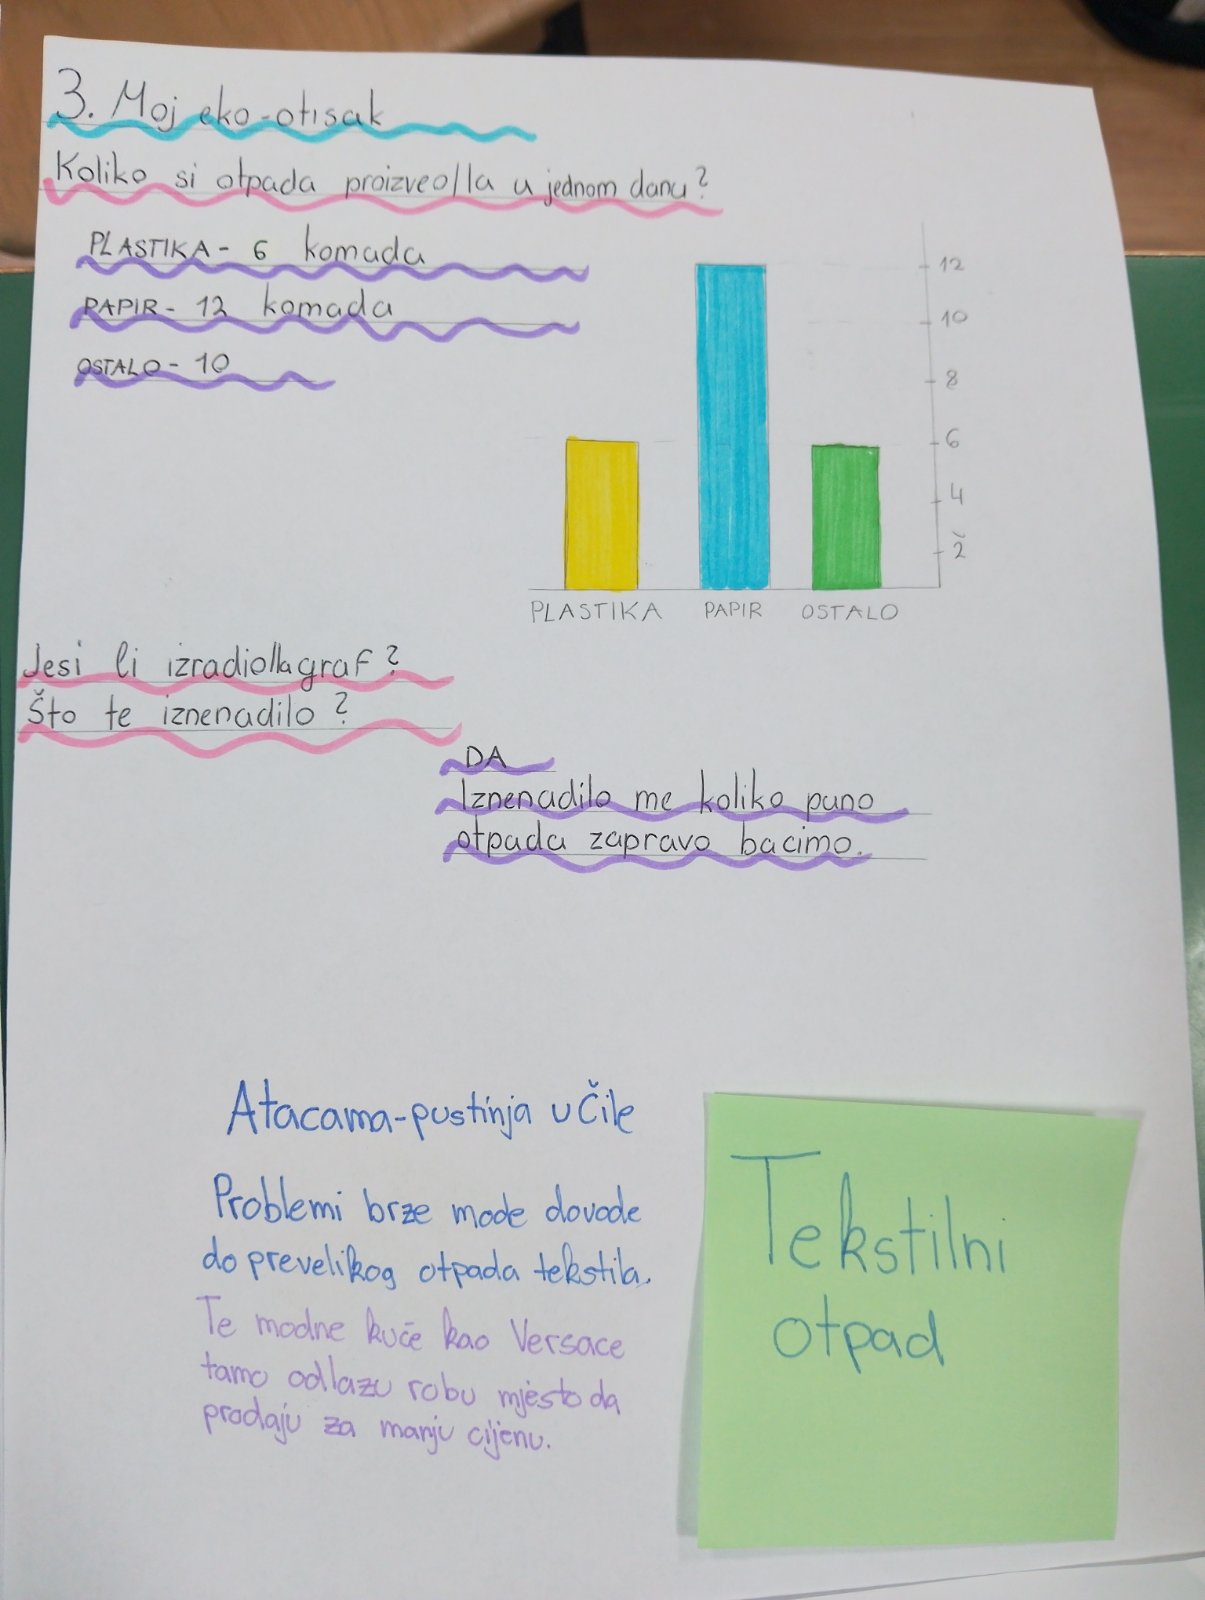 3. Moj eko-otisak
Koliko si otpada proizveo/la u jednom danu?
PLASTIKA - 6 komada
PAPIR - 12 komada
OSTALO - 10
12
10
8
6
4
2
PLASTIKA PAPIR OSTALO
Jesi li izradio/la graf?
Što te iznenadilo?
DA
Iznenadilo me koliko puno
otpada zapravo bacimo.
Atacama-pustinja u Čile
Problemi brze mode dovode
do prevelikog otpada tekstila.
Te modne kuće kao Versace
tamo odlazu robu mjesto da
prodaju za manju cijenu.
Tekstilni
otpad